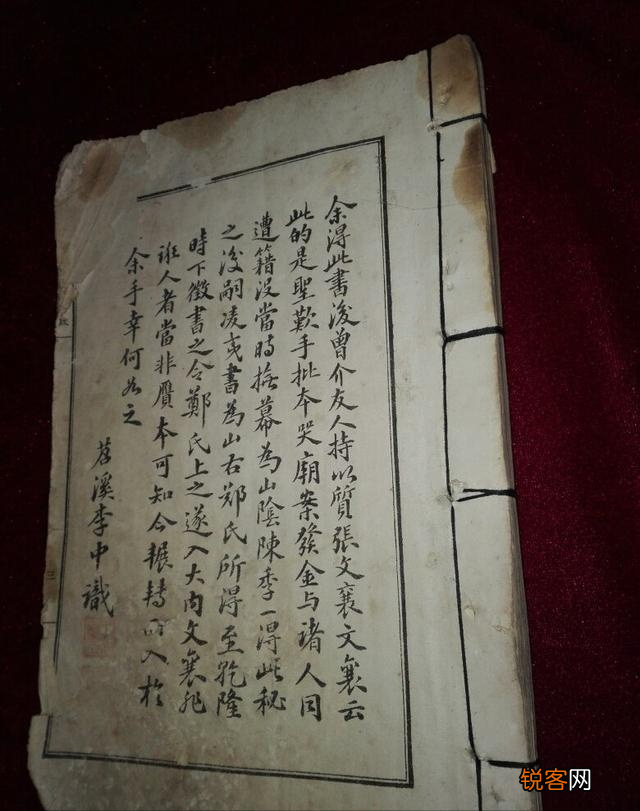 余得此書後曾介友人持以質張文襄文襄云
此的是聖歎手批本哭廟案發金与诸人同
遭籍沒當時撫幕為山陰陳季一得此秘
之後嗣凌夷書為山右郑氏所得至乾隆
時下徵書之令鄭氏上之遂入大内文襄非
誑人者當非贋本可知今輾轉而入於
余手幸何如之
苕溪李中識
三
锐客网